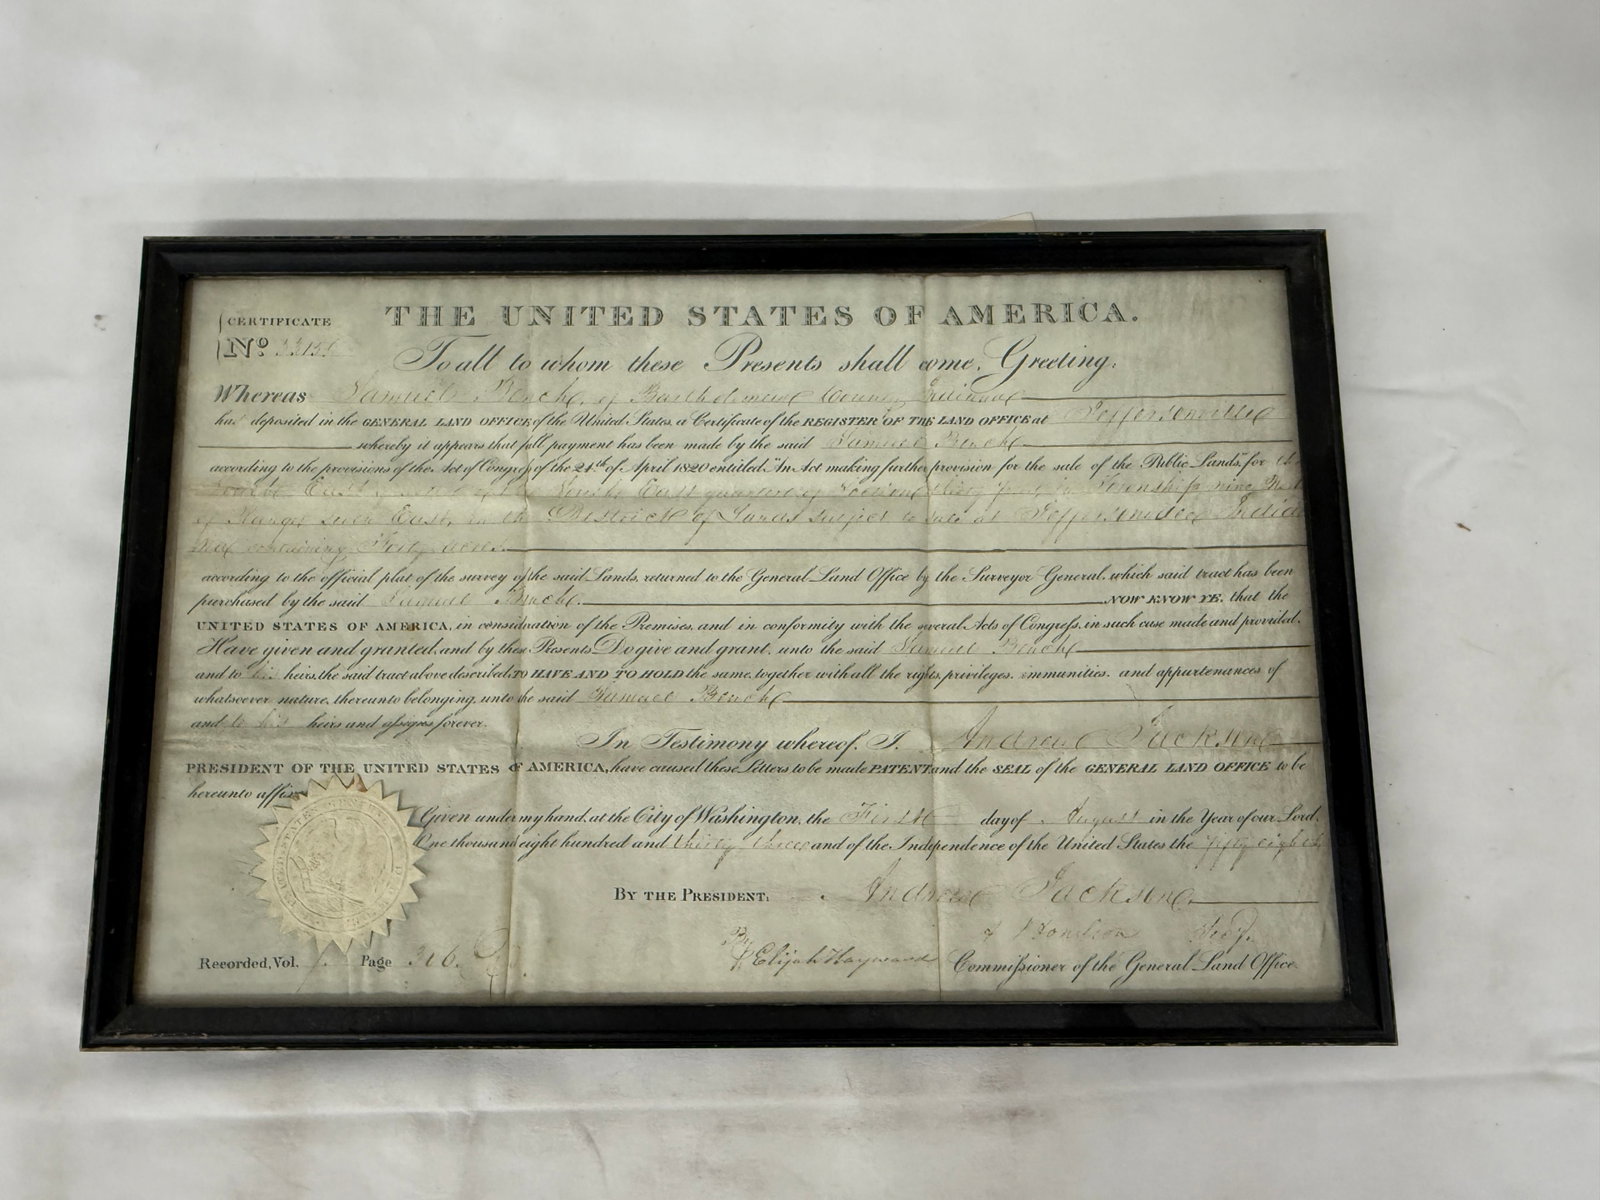 CERTIFICATE
THE UNITED STATES OF AMERICA.
No
To all to whom these Presents shall come, Greeting:
Whereas Samuel of Bartholomew County, Indiana
ha deposited in the GENERAL LAND OFFICE of the United States, a Certificate of the REGISTER OF THE LAND OFFICE at Jeffersonville
whereby it appears that full payment has been made by the said Samuel
according to the provisions of the Act of Congress of the 24th of April 1820 entitled "An Act making further provision for the sale of the Public Lands," for the
East quarter of the East quarter of Section in Township nine
of Range seven East, in the District of Lands subject to sale at Jeffersonville India
na containing Forty acres
according to the official plat of the survey of the said Lands, returned to the General Land Office by the Surveyor General, which said tract has been
purchased by the said Samuel NOW KNOW YE, that the
UNITED STATES OF AMERICA, in consideration of the Premises, and in conformity with the several Acts of Congress, in such case made and provided,
Have given and granted, and by these Presents Do give and grant, unto the said Samuel
and to his heirs, the said tract above described, TO HAVE AND TO HOLD the same, together with all the rights, privileges, immunities, and appurtenances of
whatsoever nature, thereunto belonging, unto the said Samuel
and to his heirs and assigns forever.
In Testimony whereof, I, Andrew Jackson
PRESIDENT OF THE UNITED STATES OF AMERICA, have caused these Letters to be made PATENT and the SEAL of the GENERAL LAND OFFICE to be
hereunto affixed
Given under my hand, at the City of Washington, the First day of August in the Year of our Lord
One thousand eight hundred and thirty three and of the Independence of the United States the fifty eighth
BY THE PRESIDENT: Andrew Jackson
By A J Donelson Sec'y.
Elijah Hayward Commissioner of the General Land Office.
Recorded, Vol. Page 326.